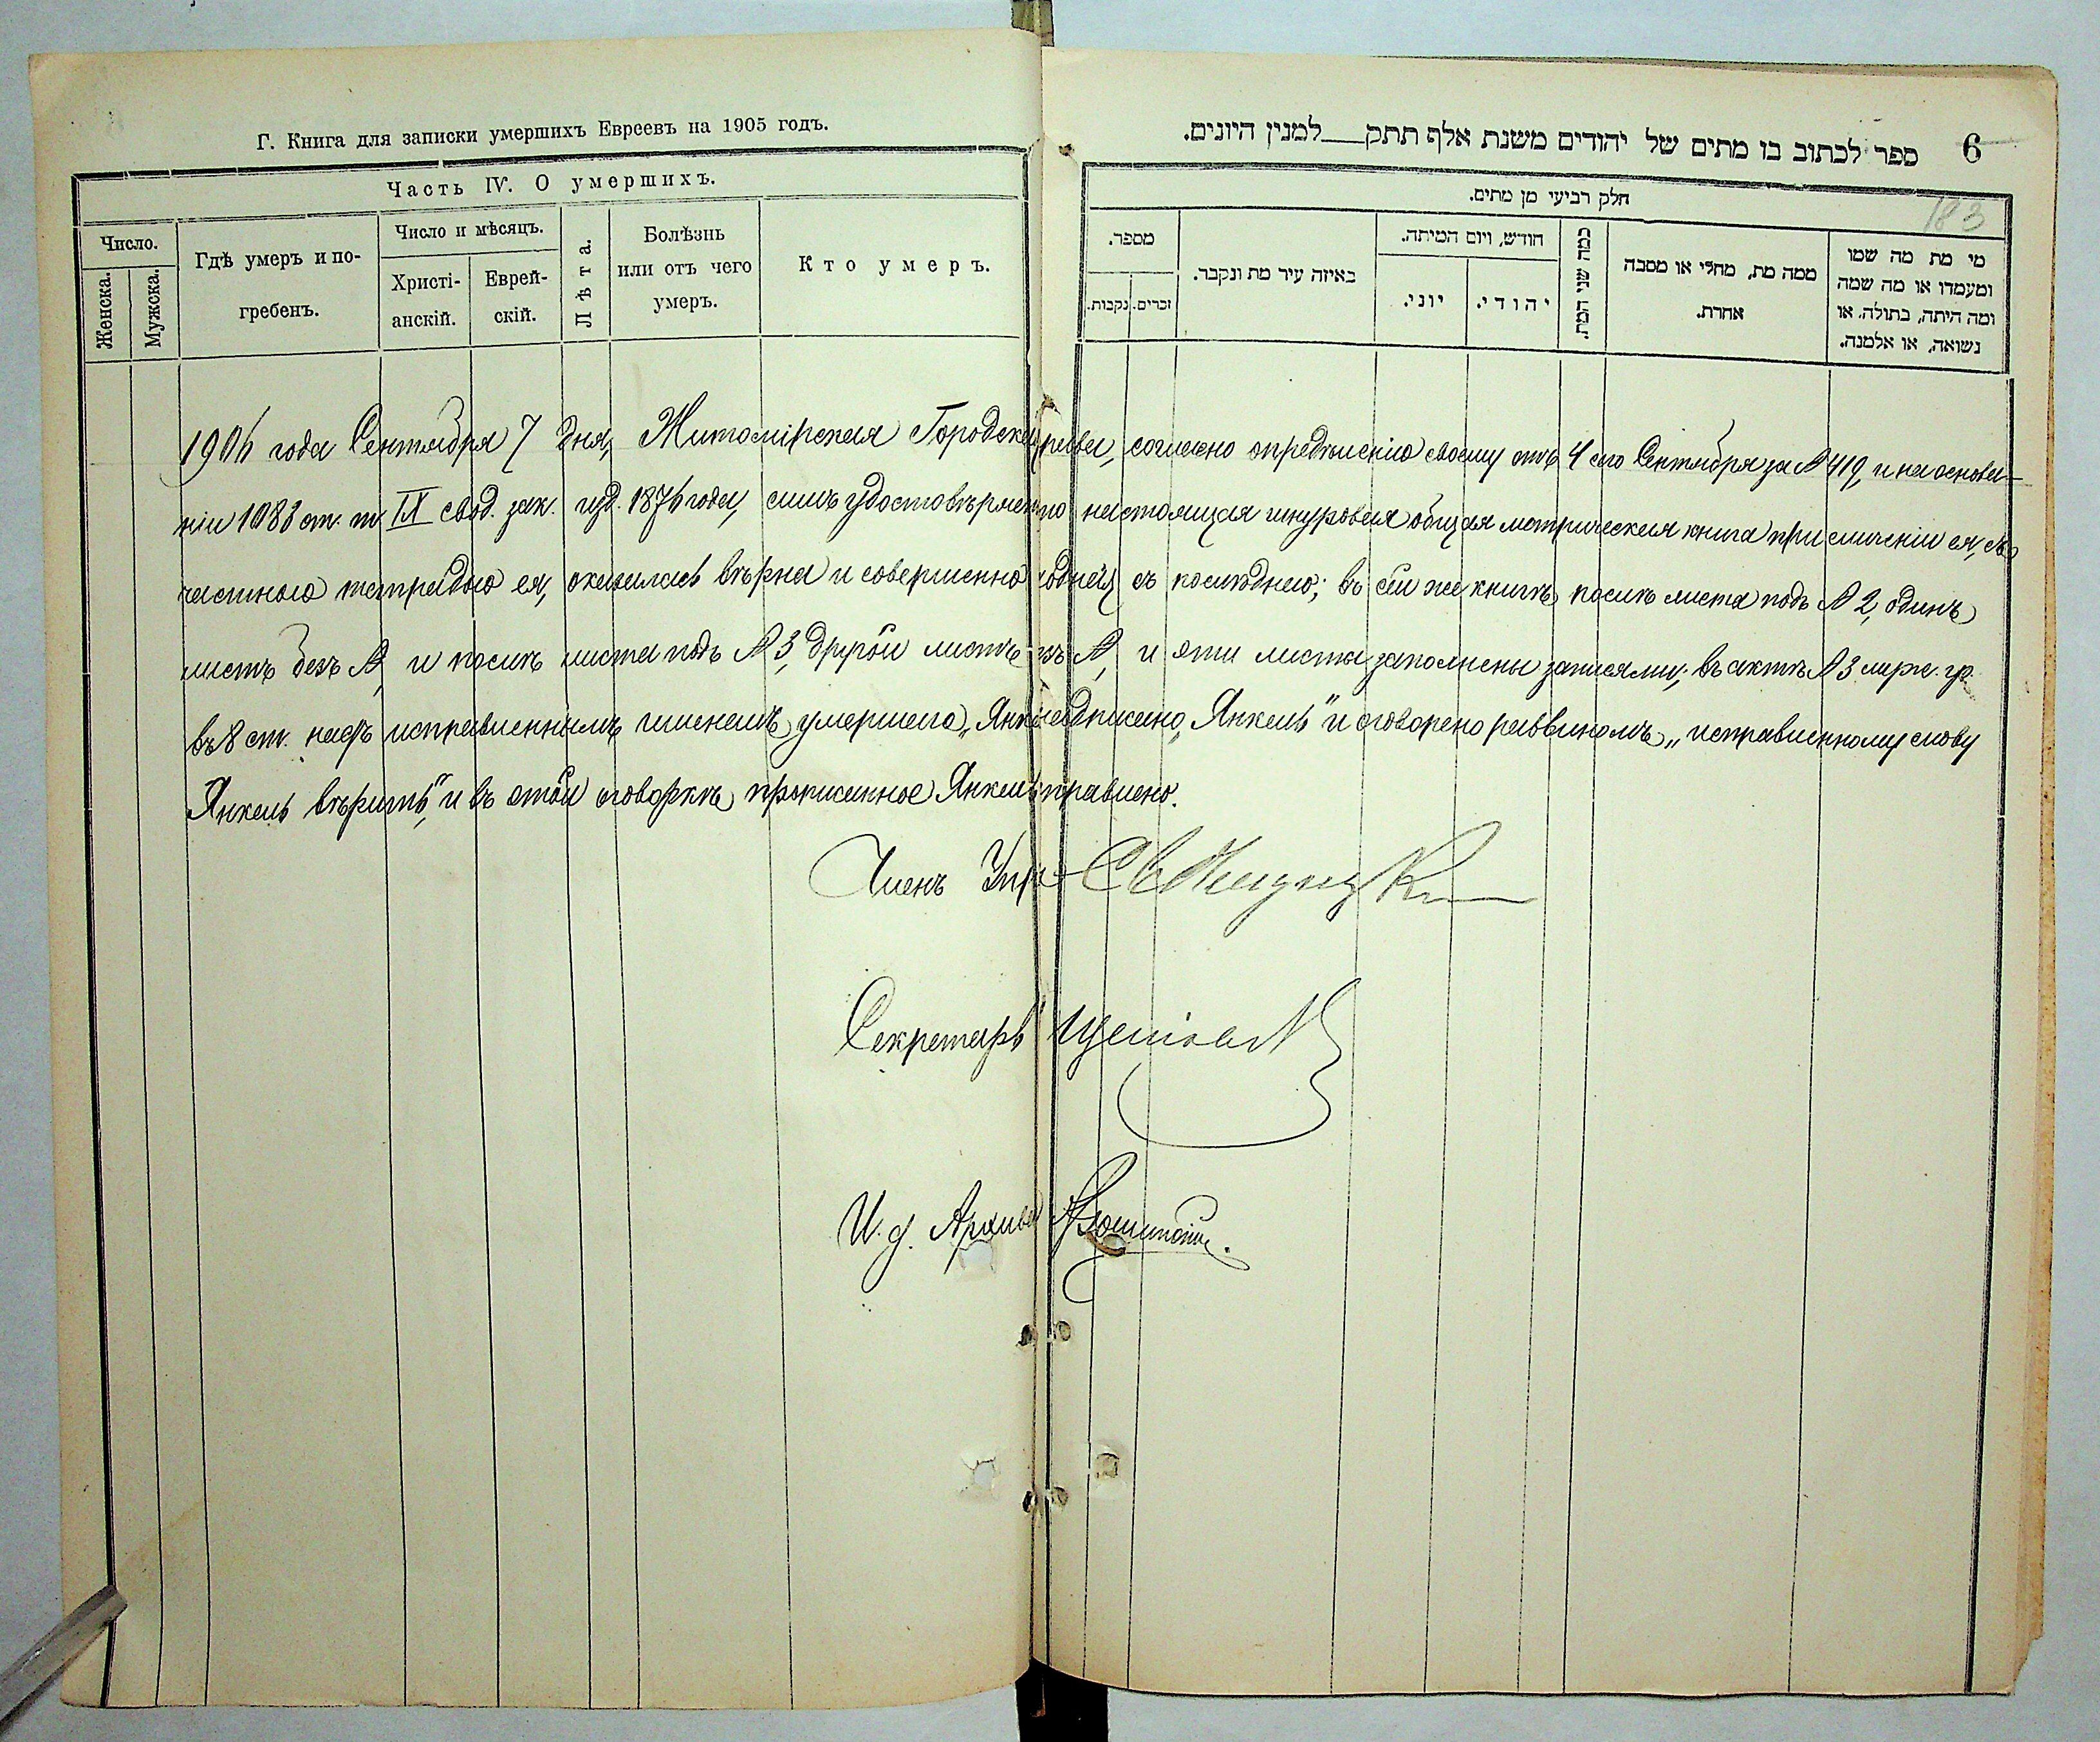 Г. Книга для записки умершихъ Евреевъ на 1905 годъ.
Часть IV. О умершихъ.
Число.
Женска.
Мужска.
Гдѣ умеръ и по-
гребенъ.
Число и мѣсяцъ.
Христі-
анскій.
Еврей-
скій.
Лѣта.
Болѣзнь
или отъ чего
умеръ.
Кто умеръ.
6
ספר לכתוב בו מתים של יהודים משנת אלף תתק למנין היונים.
183
חלק רביעי מן מתים.
מספר.
נקבות.
זכרים.
באיזה עיר מת ונקבר.
חודש, ויום המיתה.
יוני.
יהודי.
כמה שני המת.
ממה מת, מחלי או מסבה
אחרת.
מי מת מה שמו
ומעמדו או מה שמה
ומה היתה, בתולה, או
נשואה, או אלמנה.
1906 года Сентября 7 дня, Житомірская Городская Управа, согласно опредѣленію своему отъ 4 сего Сентября за № 419, и на основа-
ніи 1083 ст. т. IX свод. зак. изд. 1876 года, симъ удостовѣряетъ, что настоящая шнуровая общая метрическая книга при сличеніи ея, съ
частною тетрадью ея, оказалась вѣрна и совершенно сходней съ послѣднею; въ сей же книгѣ послѣ листа подъ № 2, одинъ
листъ безъ №, и послѣ листа подъ № 3, другой листъ безъ №, и эти листы заполнены записями; въ актѣ № 3 мужс. гр.
въ 8 ст. надъ исправленнымъ именемъ умершаго „Янкель" надписано „Янкель" и оговорено раввиномъ „исправленному слову
Янкель вѣрить", и въ этой оговоркѣ прописанное Янкель исправлено.
Членъ Управы
Секретарь
И. д. Архива